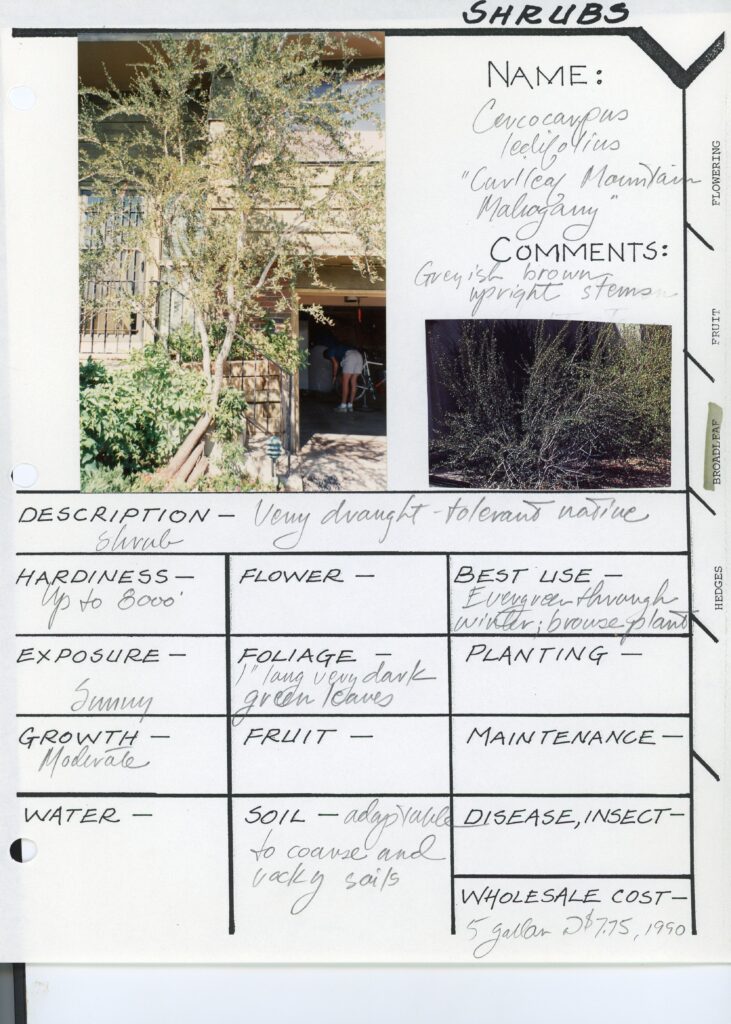 SHRUBS
NAME:
Cercocarpus
ledifolius
"Curlleaf Mountain
Mahogany"
COMMENTS:
Greyish brown
upright stems
FLOWERING
FRUIT
BROADLEAF
HEDGES
DESCRIPTION - Very draught-tolerant native
shrub
HARDINESS -
Up to 8000'
FLOWER -
BEST USE -
Evergreen through
winter; browse plant
EXPOSURE -
Sunny
FOLIAGE -
1" long very dark
green leaves
PLANTING -
GROWTH -
Moderate
FRUIT -
MAINTENANCE -
WATER -
SOIL - adaptable
to coarse and
rocky soils
DISEASE, INSECT -
WHOLESALE COST -
5 gallon @ $7.75, 1990